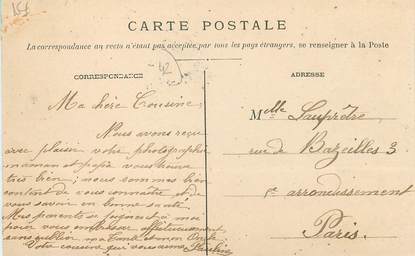 CARTE POSTALE
La correspondance au recto n'étant pas acceptée par tous les pays étrangers, se renseigner à la Poste
CORRESPONDANCE
ADRESSE
42
Ma chère Cousine,
Nous avons reçu
avec plaisir votre photographie
maman et papa vous trouve
très bien; nous sommes bien
content de vous connaître et de
vous savoir en bonne santé.
Mes parents se joignent à moi
pour vous embrasser affectueusement
sans oublier ma Tante et mon Oncle
Votre cousine qui vous aime Pauline
Melle Lauprêtre
rue de Bazeilles 3
Ve arrondissement
Paris.